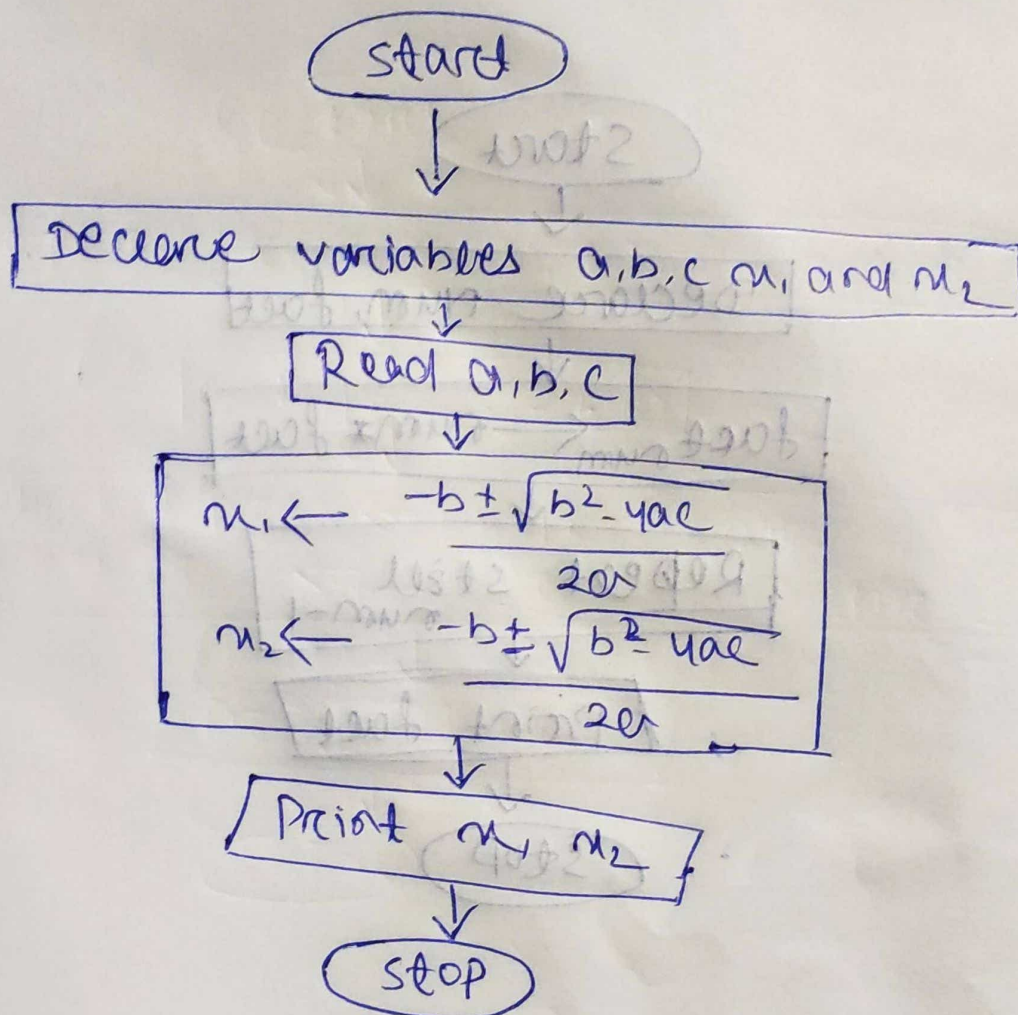 start
Declare variables a, b, c x₁ and x₂
Read a, b, c
x₁ ← -b ± √b² - 4ac
2a
x₂ ← -b ± √b² - 4ac
2a
Print x₁ x₂
stop